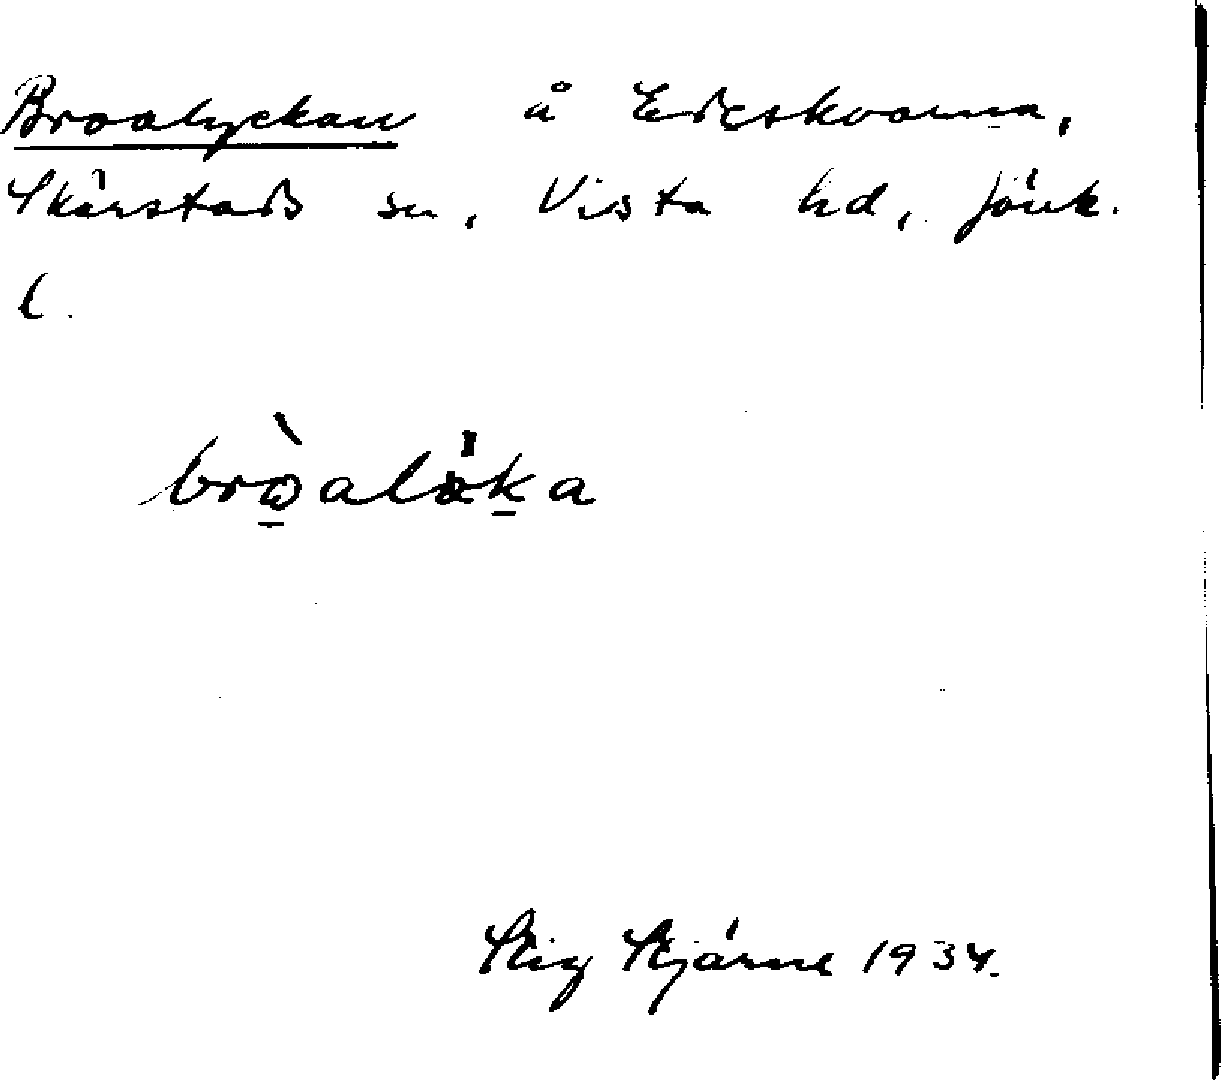 Broalyckan å Edeskvarna,
Skärstads sn, Vista hd, Jönk.
l.
bròalöka
Stig Stjärne 1934.